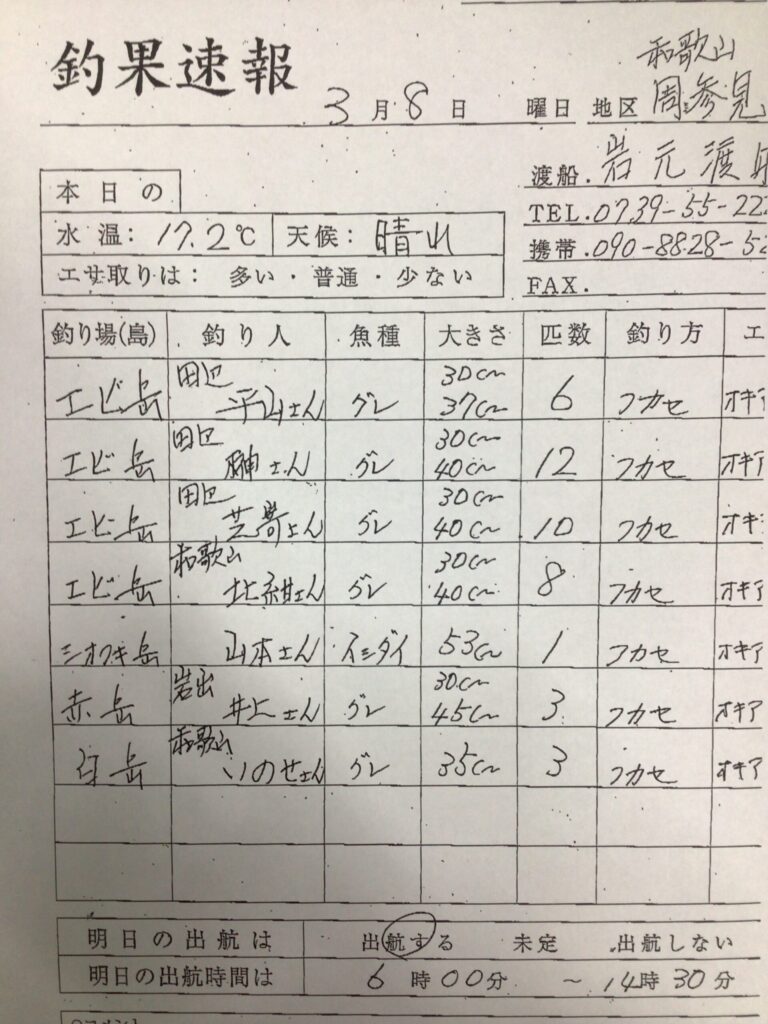 釣果速報
3月8日 曜日 地区 和歌山 周参見
渡船. 岩元渡
TEL.0739-55-22
携帯.090-8828-5
FAX.
本日の
水温: 17.2℃ 天候: 晴れ
エサ取りは: 多い・普通・少ない
釣り場(島) 釣り人 魚種 大きさ 匹数 釣り方 エ
エビ岳 田辺 平山さん グレ 30cm 37cm 6 フカセ オキア
エビ岳 田辺 榊さん グレ 30cm 40cm 12 フカセ オキア
エビ岳 田辺 芝嵜さん グレ 30cm 40cm 10 フカセ オキ
エビ岳 和歌山 さん グレ 30cm 40cm 8 フカセ オキア
シオフキ岳 山本さん イシダイ 53cm 1 フカセ オキア
赤岳 岩出 井上さん グレ 30cm 45cm 3 フカセ オキア
白岳 和歌山 いのせさん グレ 35cm 3 フカセ オキア
明日の出航は 出航する 未定 出航しない
明日の出航時間は 6時00分 ～14時30分